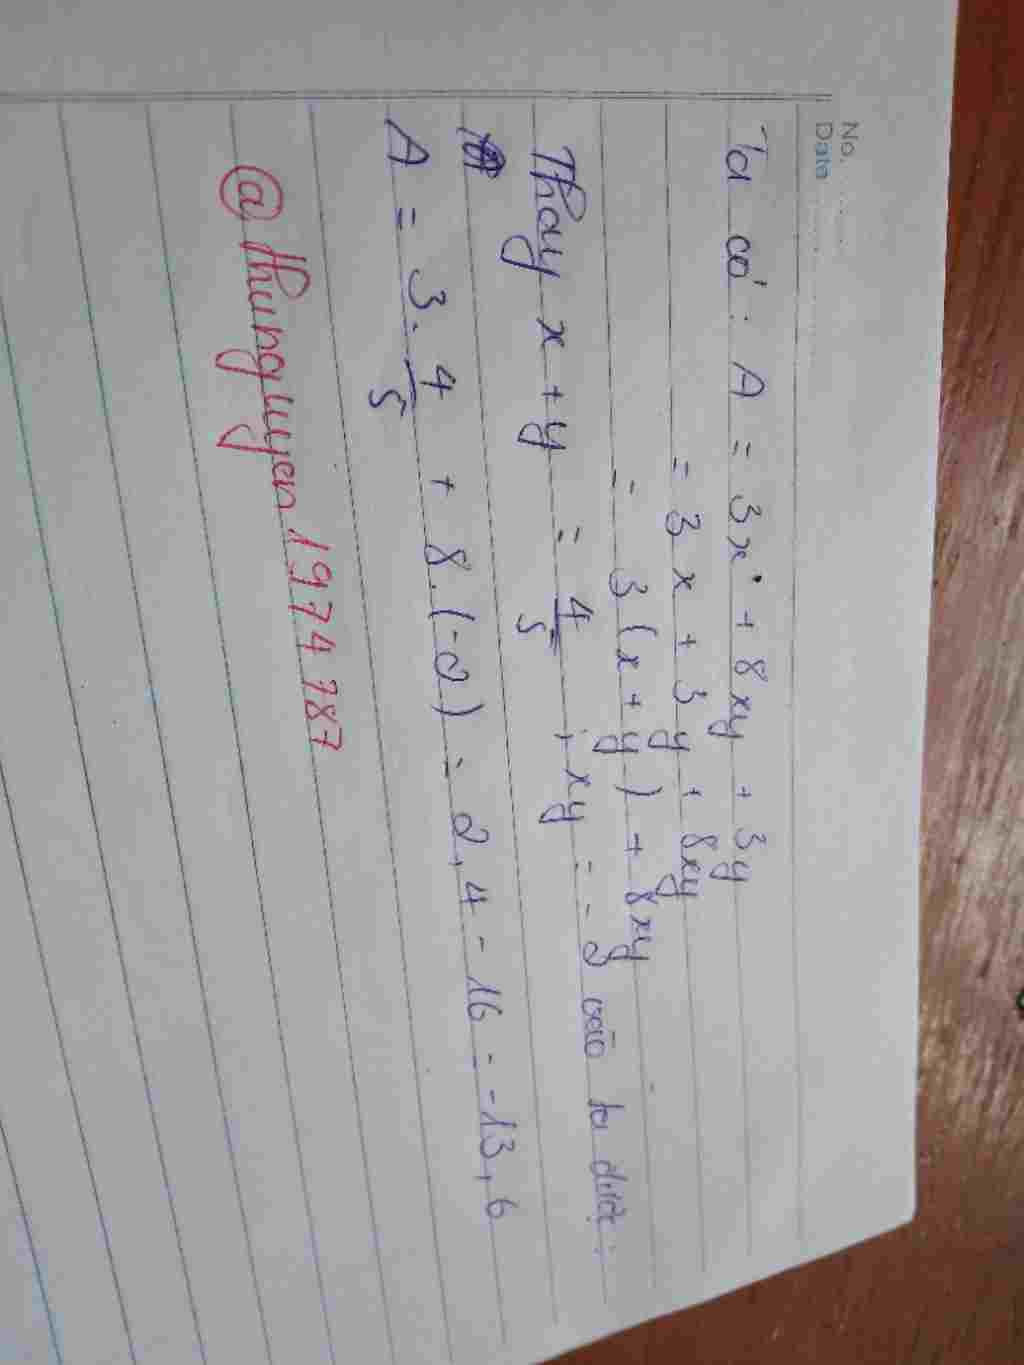 No.
Date
Ta có: A = 3x + 8xy + 3y
= 3x + 3y + 8xy
= 3(x + y) + 8xy
Thay x + y = 4/5, xy = -2 vào ta được:
A = 3. 4/5 + 8.(-2) = 2,4 - 16 = -13,6
@thunguyen1974787